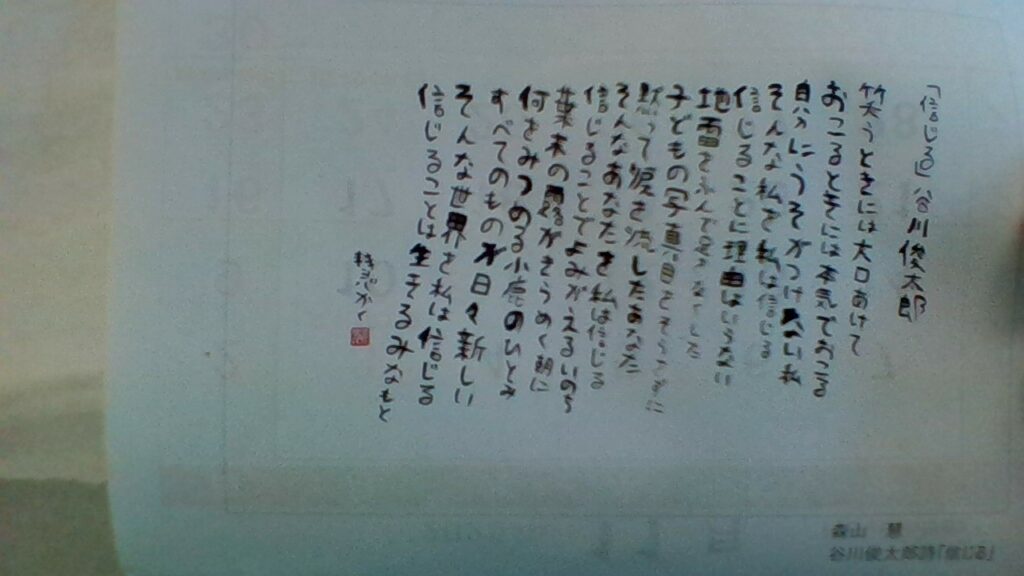 「信じる」谷川俊太郎
笑うときには大口あけて
おこるときには本気でおこる
自分にうそがつけない私
そんな私を私は信じる
信じることに理由はいらない
地雷をふんで足をなくした
子どもの写真目をそらさずに
黙って涙を流したあなた
そんなあなたを私は信じる
信じることでよみがえるいのち
葉末の露がきらめく朝に
何をみつめる小鹿のひとみ
すべてのものが日々新しい
そんな世界を私は信じる
信じることは生きるみなもと
森山 慧
谷川俊太郎詩「信じる」